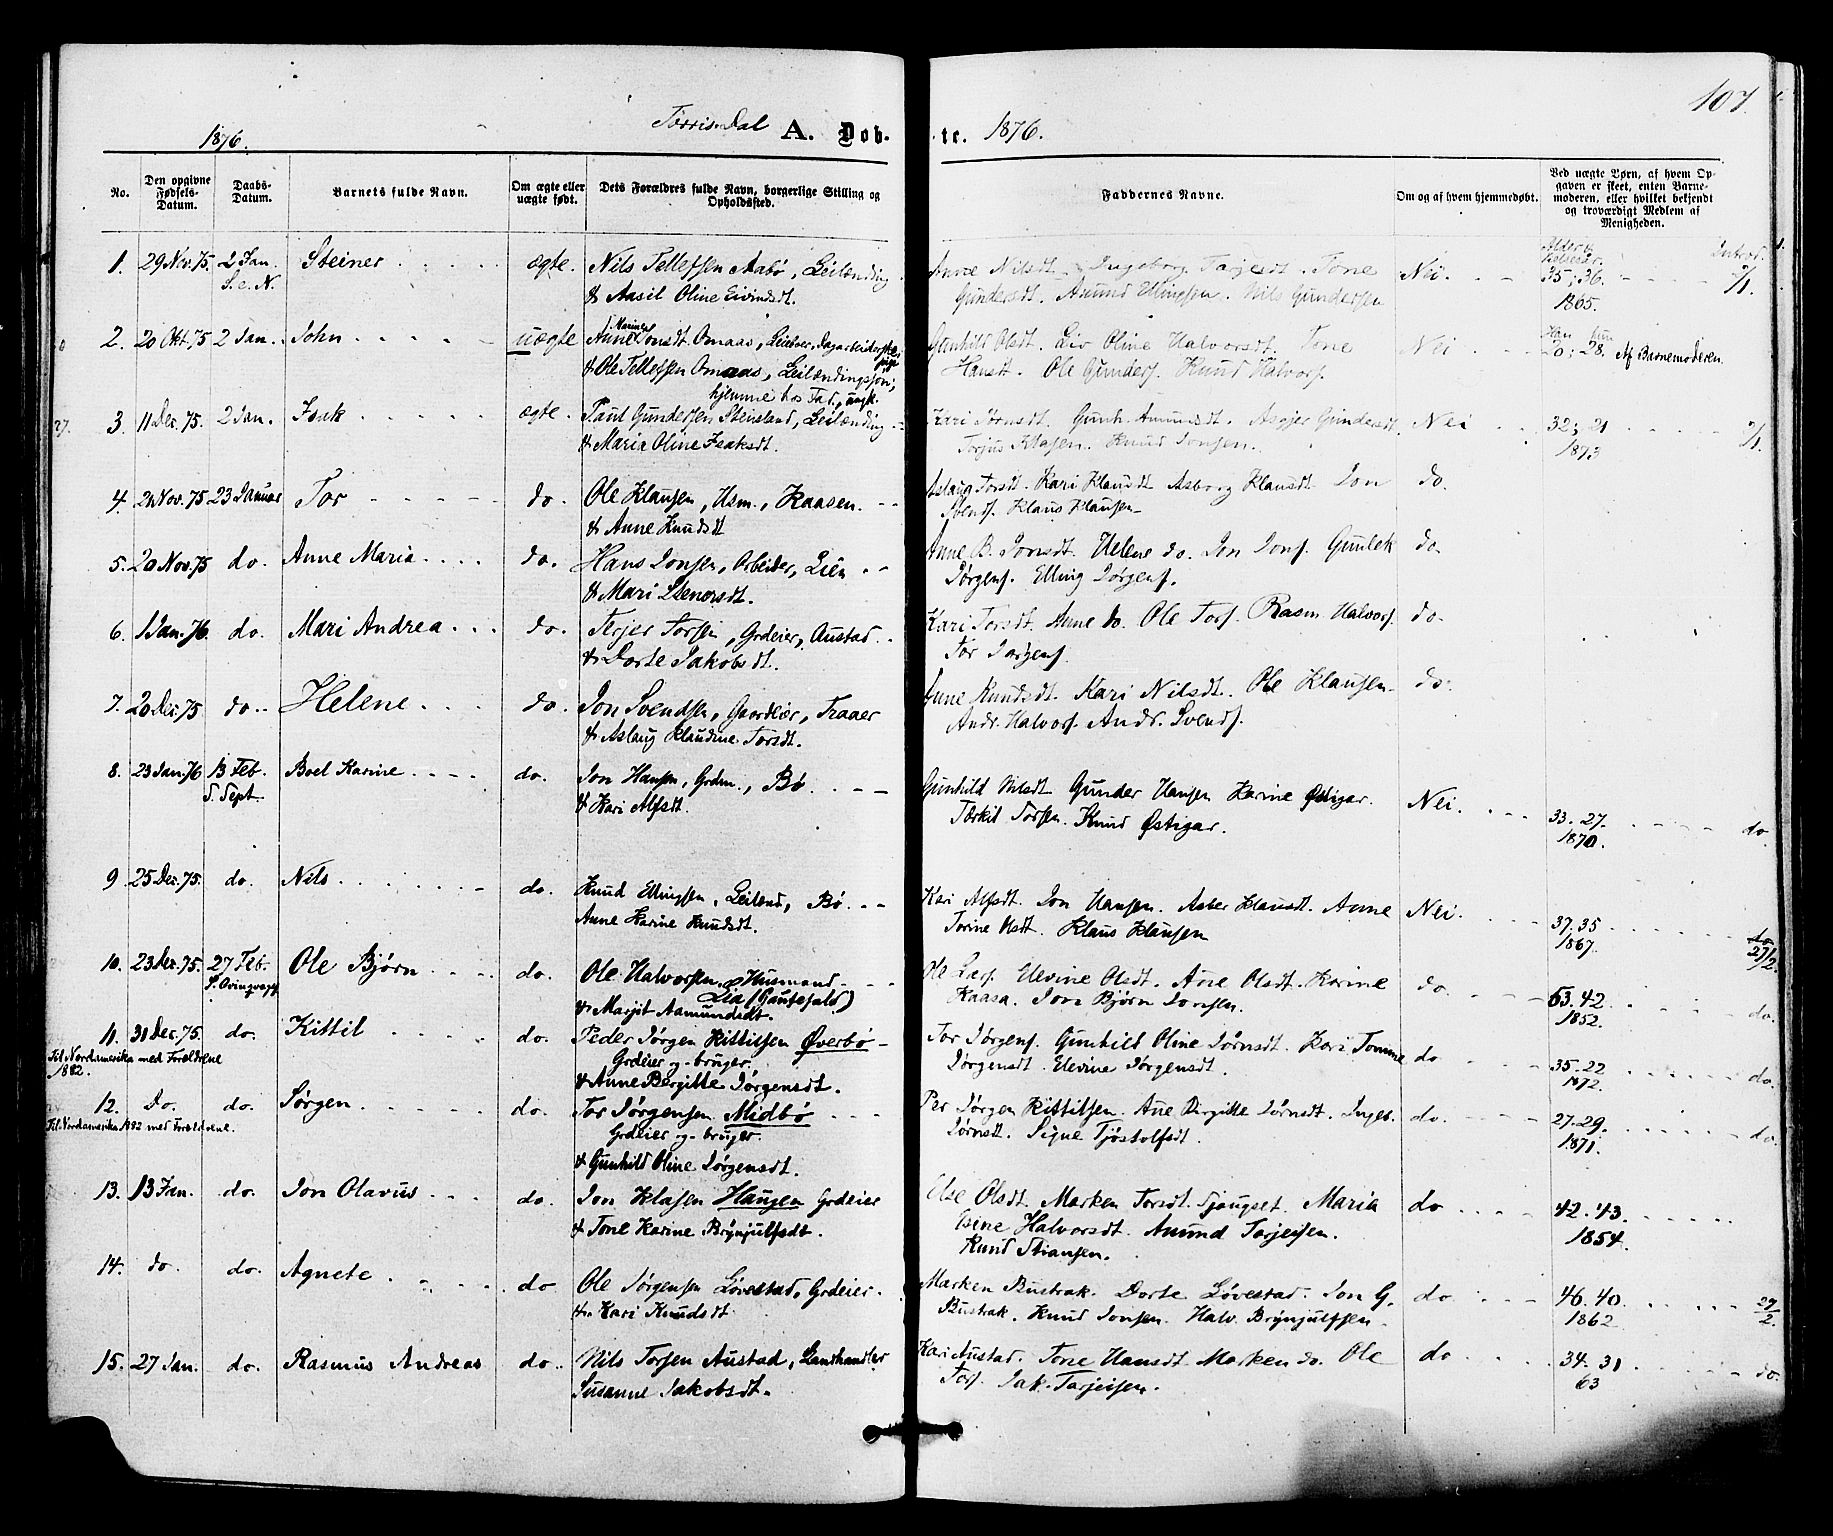 107.
1876. Torrisdal A. Dob- te. 1876.
No. | Den opgivne Fødsels-Datum. | Daabs-Datum. | Barnets fulde Navn. | Om ægte eller uægte født. | Dets Forældres fulde Navn, borgerlige Stilling og Opholdssted. | Faddernes Navne. | Om og af hvem hjemmedøbt. | Ved uægte Børn, af hvem Opgaven er skeet, enten Barnemoderen, eller hvilket bekjendt og troværdigt Medlem af Menigheden.
1. 29 Nov. 75. 2 Jan. Steiner ægte. Nils Tellefsen Aabø, Leilænding Anne Nilsdt. Ingeborg Tarjesdt. Tone Nei. 35; 36. Introd.
S. e. N. & Aasil Oline Eivindsdt. Gundersdt. Asmund Ellingsen. Nils Gundersen 1865.
2. 20 Okt. 75 2 Jan. John uægte Anne Jonsdt. Omaas, Gunhild Olsdt. Liv Oline Halvorsdt. Tone Nei Han hun 20; 28. Af Barnemoderen
& Ole Tellefsen Omaas, Leilændingssøn, Hansdt. Ole Gunders. Knud Halvors.
hjemme hos Fad., ungk.
3. 11 Dec. 75. 2 Jan. Isak ægte. Paul Gundersen Stensland, Leilænding Kari Jørnsdt. Gunh. Amundsdt. Asgjer Gundersdt. Nei 32; 21
& Maria Oline Isaksdt. Torjus Klasen. Knud Jonsen. 1873
4. Nov. 75 23 Januar Tor do. Ole Klausen, Husm., Kaasen. Aslaug Torsdt. Kari Klausdt. Asborg Klausdt. Jon do.
& Anne Knudsdt Svends. Klaus Klausen
5. 20 Nov. 75 do. Anne Maria do. Hans Jonsen, Arbeider, Lien Anne B. Jonsdt. Helene do. Jon Jons. Gunlek do.
& Mari Stenersdt. Jørgens. Elling Jørgens.
6. 1 Jan. 76. do. Mari Andrea do. Terjer Torsen, Grdeier, Austad Kari Torsdt. Anne do. Ole Tors. Rasm Halvors. do.
& Dorte Jakobsdt. Tor Jørgens.
7. 20 Dec. 75 do. Helene do. Jon Svendsen, Gaardeier, Traaer Anne Knudsdt. Kari Nilsdt. Ole Klausen do.
& Aslaug Klaudine Torsdt. Andr. Halvors. Andr. Svends.
8. 23 Jan. 76 13 Feb. Boel Karine do. Jon Hansen, Grdm., Bø Gunhild Nilsdt Gunder Hansen Karine Østigar. Nei. 33. 27. do
S. Sept. & Kari Alfsdt. Tarkil Torsen. Knud Østigar. 1870.
9 25 Dec. 75. do. Nils do. Knud Ellingsen, Leilænd, Bø. Kari Alfsdt. Jon Hansen. Klausdt. Anne Nei. 37. 35 do
Anne Karine Knudsdt. Torine Olsdt. Klaus Klausen 1867.
10. 23 Dec. 75. 27 Feb. Ole Bjørn do. Ole Halvorsen, Husmand Ole Lars. Elevine Olsdt. Ane Olsdt. Karine do. 53. 42. 27/2.
Lia (Gautefald) do.
& Marjit Aamundsdt. Kaasa. Jon Bjørn Jonsen. 1852.
11. 31 Dec. 75. do. Kittil do. Peder Jørgen Kittilsen Øverbø Tor Jørgens. Gunhild Oline Jørnsdt. Kari Tomine do 35. 22 do.
Til Nordamerika med Forældrene 1882. Grdeier og -bruger. Jørgensdt. Elevine Jørgensdt. 1872.
& Anne Bergitte Jørgensdt.
12. Do. do. Jørgen do. Tor Jørgensen Midbø Per Jørgen Kittilsen. Ane Birgitte Jørnsdt. Ingeb. do. 27. 29. do.
Til Nordamerika 1882 med Forældrene. Grdeier og -bruger. Jørnsdt. Signe Tjøstolfsdt. 1871.
& Gunhild Oline Jørgensdt.
13. 13 Jan. do. Jon Olavus do. Jon Klasen Haugen Grdeier Else Olsdt. Marken Torsdt. Maria do 42. 43.
& Tone Karine Brynjulfsdt. Halvorsdt. Amund Tarjeisen. 1854.
Knud Stiansen.
14. do do. Agnete do Ole Jørgensen Løvestad, Grdeier. Marken Bustrak. Dorte Løvestad. Jon G. do 46. 40. 27/2.
& Kari Knudsdt. Bustrak. Knud Jonsen. Halv. Brynjulfsen 1862
15. 27 Jan. do. Rasmus Andreas do. Nils Torsen Austad, Landhandler Kari Austad. Tone Hansdt. Marken do. Ole do 34. 31 do.
Susanne Jakobsdt. Tors. Jak. Tarjeisen. 63